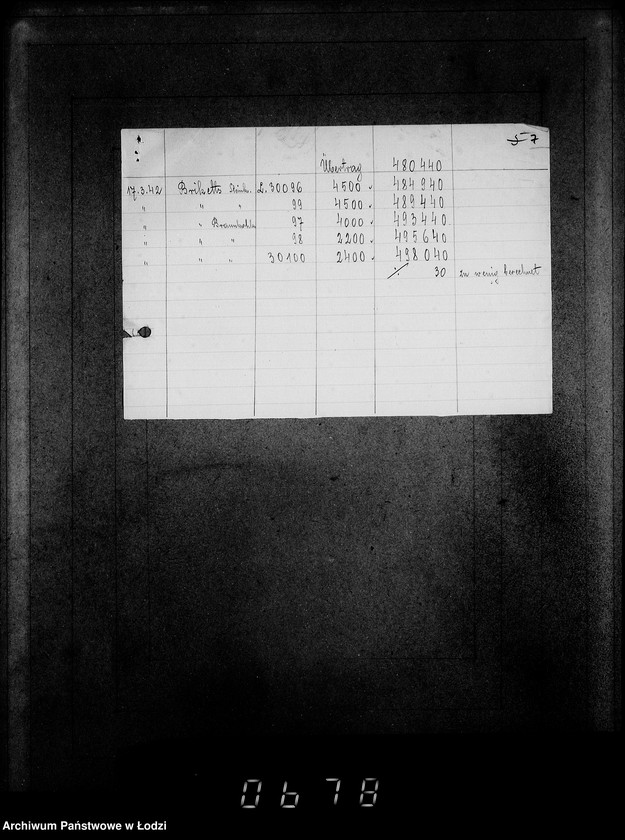 5 7
Übertrag 480 440
17.3.42 Briketts Steink. L. 30096 4500 484 940
" " " 99 4500 489 440
" " Braunkohle 97 4000 493 440
" " " 98 2200 495 640
" " " 30100 2400 498 040
./. 30 zu wenig berechnet
0678
Archiwum Państwowe w Łodzi